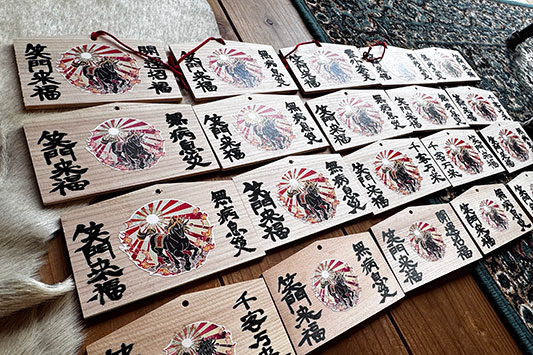 開運招福
笑門来福
無病息災
笑門来福
無病息災
笑門来福
笑門来福
無病息災
笑門来福
無病息災
笑門来福
笑門来福
笑門来福
無病息災
笑門来福
無病息災
笑門来福
千客万来
笑門来福
千客万来
笑門来福
無病息災
笑門来福
開運招福
笑門来福
無病息災
笑門来福
千客万来